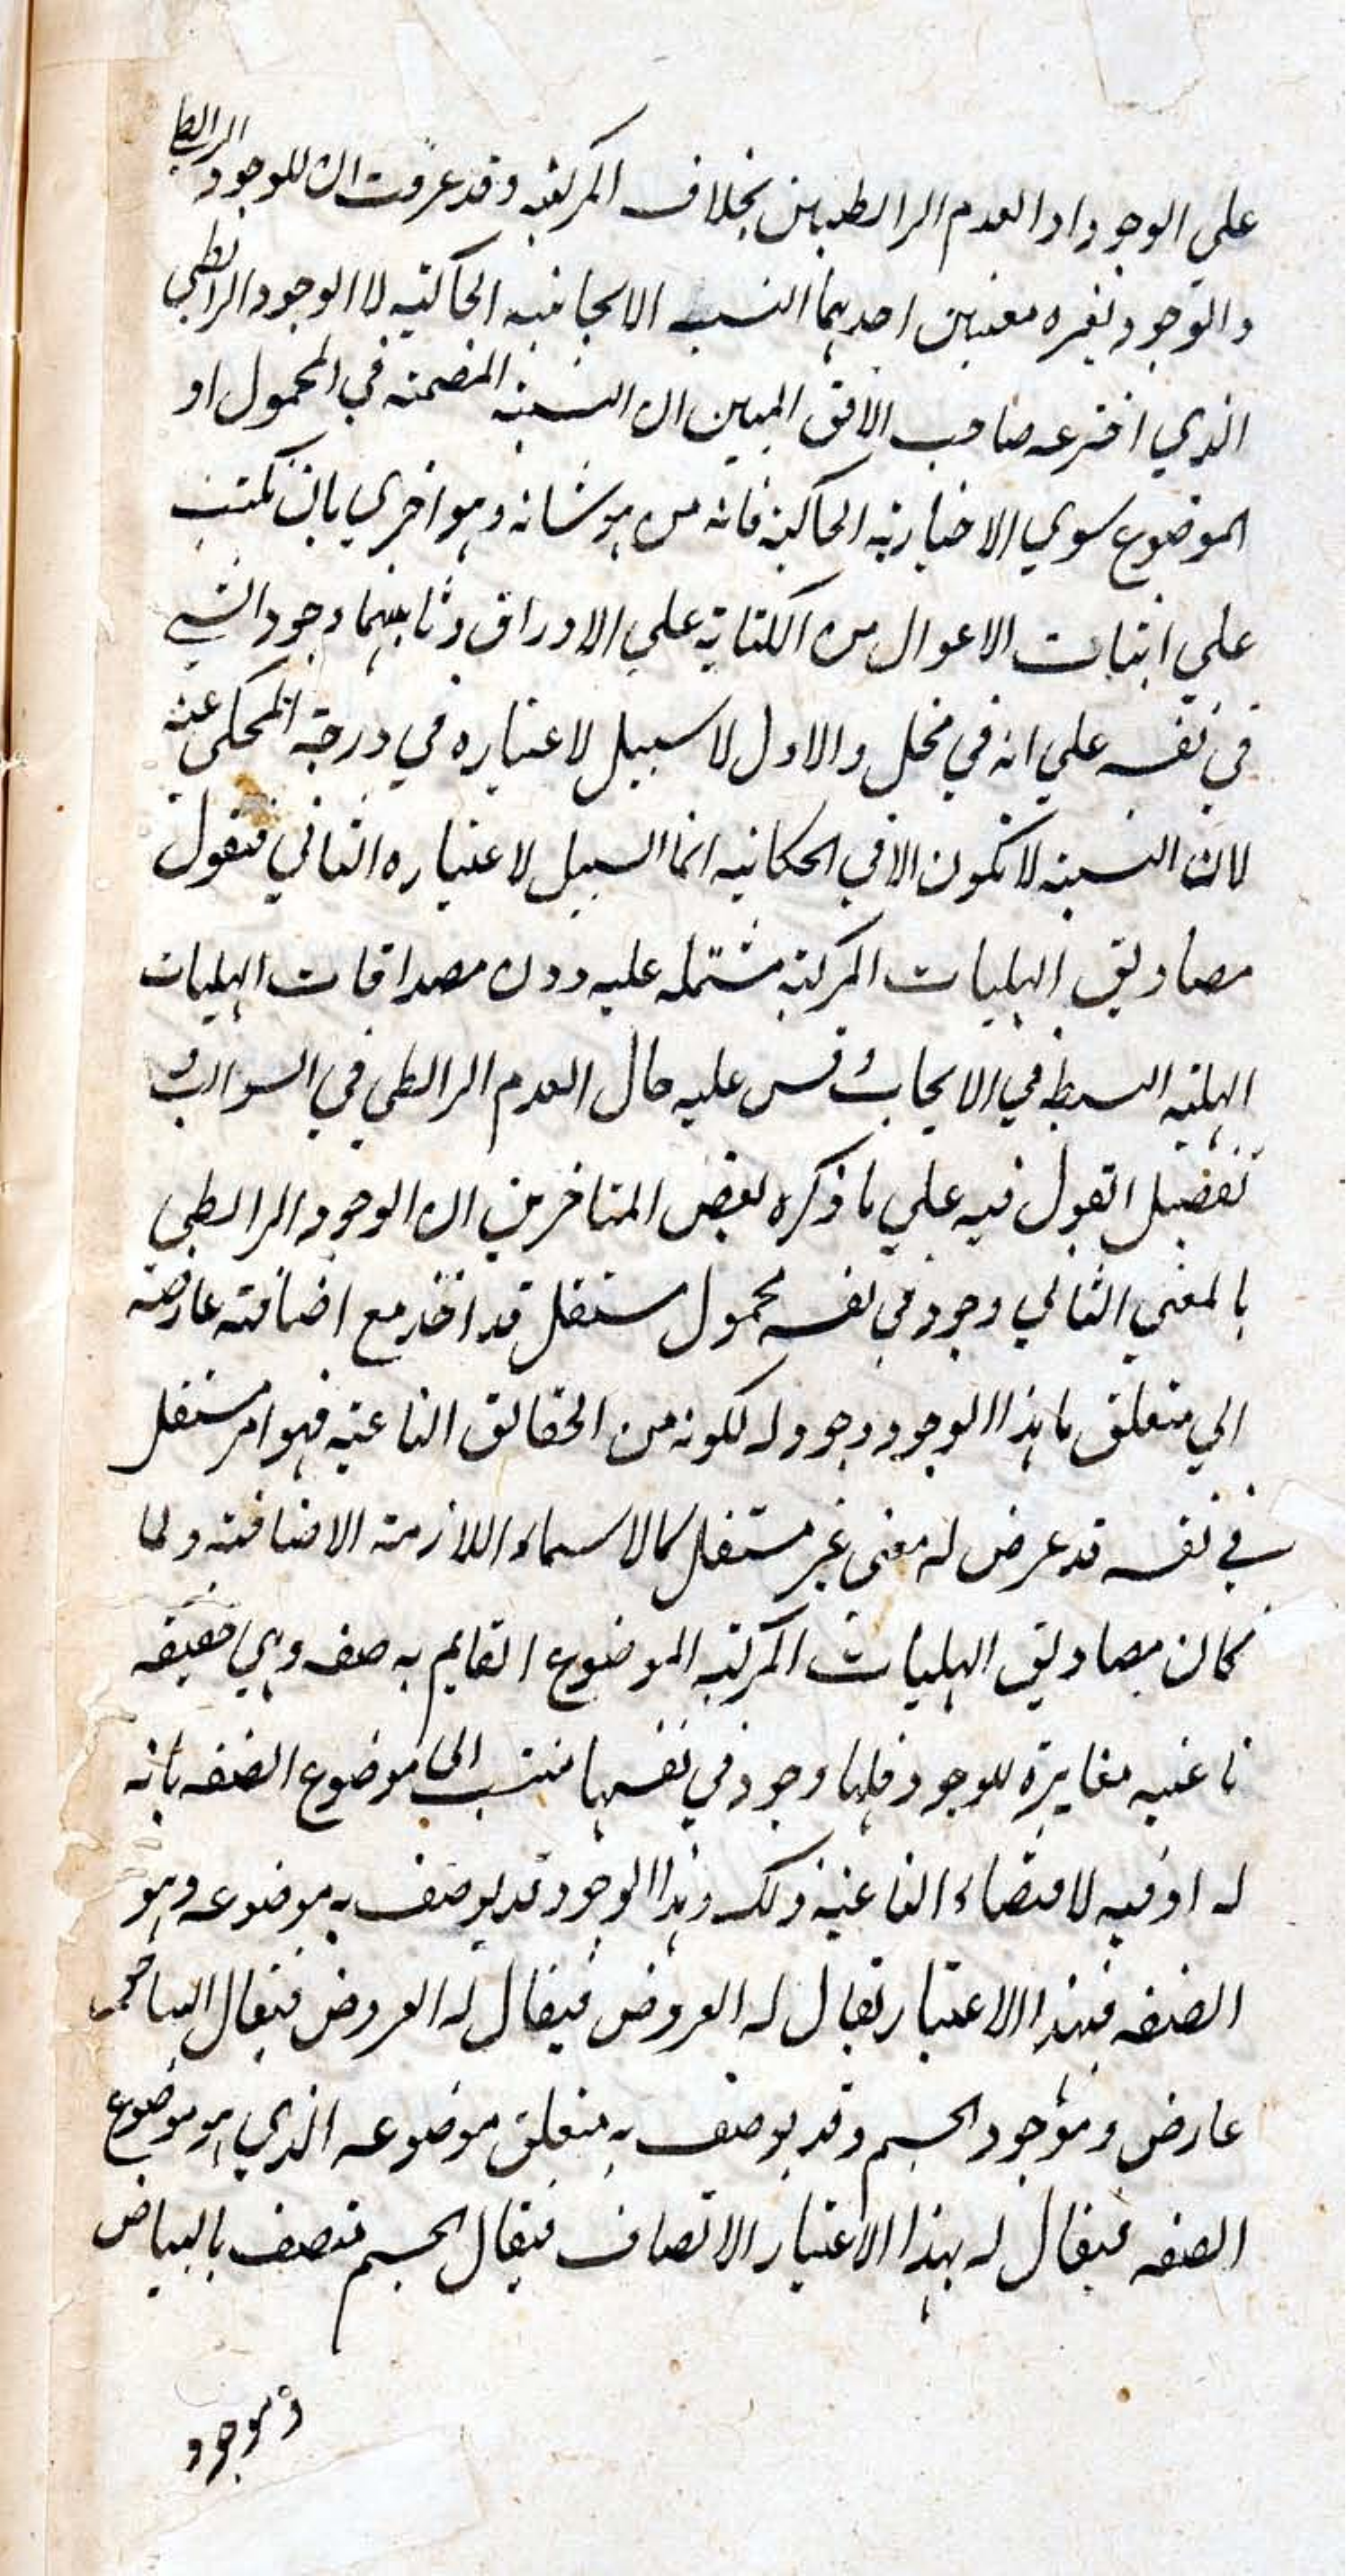 علي الوجود او العدم الرابطيين بخلاف المركبة وقد عرفت ان للوجود الرابطي
والوجود لغيره معنيين احدهما النسبة الايجابية الحاكية لا الوجود الرابطي
الذي اخترعه صاحب الافق المبين ان النسبة المضمنة في المحمول او
الموضوع سوي الاخبارية الحاكية فانه من هو شانه وهو اخري بان
علي من الكتابة علي الاوراق وثانيهما وجود الشي
في نفسه علي انه في محل والاول لا سبيل لاعتباره في درجة المحكي عنه
لان النسبة لا تكون الا في الحكاية انما السبيل لاعتباره الثاني فنقول
مصاديق الهليات المركبة مشتملة عليه دون مصداقات الهليات
الهلية البسيطة في الايجاب وقس عليه حال العدم الرابطي في السوالب
تفصيل القول فيه علي ما ذكره بعض المتاخرين ان الوجود الرابطي
بالمعني الثاني وجود في نفسه محمول مستقل قد اخذ مع اضافة عارضة
الي متعلق ما بهذا الوجود وجود له لكونه من الحقائق الناعتية فهو امر مستقل
في نفسه قد عرض له معني غير مستقل كالاسماء اللازمة الاضافة ولما
كان مصاديق الهليات المركبة الموضوع القايم به صفة وهي حقيقة
ناعتية مغايرة للوجود فلها وجود في نفسها منتسب الي موضوع الصفة بانه
له او فيه لاقتضاء الناعتية ذلك وهذا الوجود قد يوصف به موضوعه وهو
الصفة فبهذا الاعتبار يقال له العروض فيقال له العروض فيقال البياض
عارض وموجود للجسم وقد يوصف به متعلق موضوعه الذي هو موضوع
الصفة فيقال له بهذا الاعتبار الاتصاف فيقال الجسم متصف بالبياض
وموجود